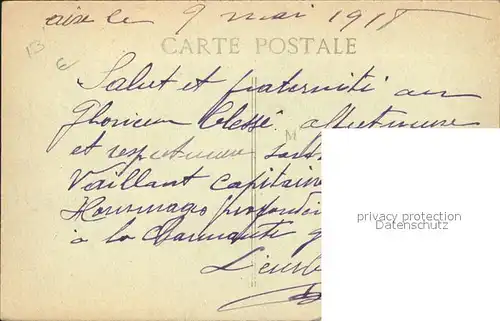 le 9 mai 1918
CARTE POSTALE
Salut et fraternité au
Glorieux blessé affectueuse
M
et respectueuse
Vaillant capitaine
Hommages profond
à la Charmante
privacy protection
(Personenrechte)